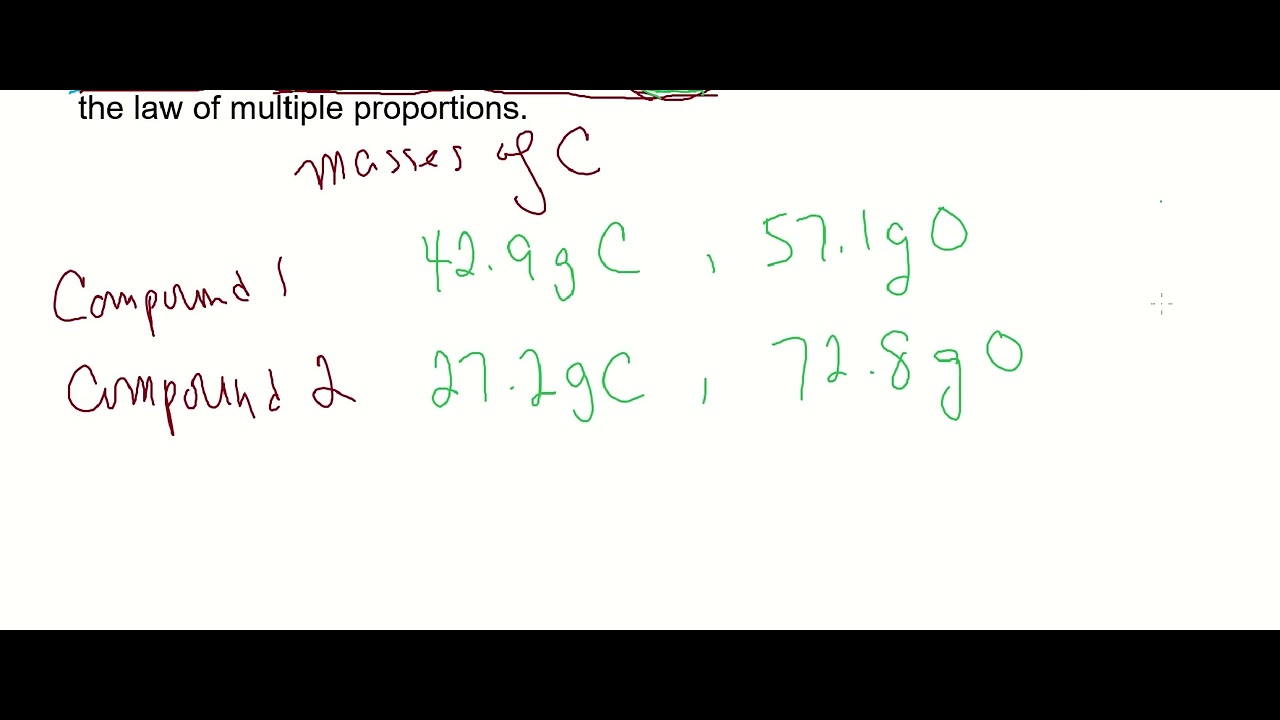 the law of multiple proportions.
masses of C
Compound 1 42.9g C , 57.1g O
Compound 2 27.2g C , 72.8g O